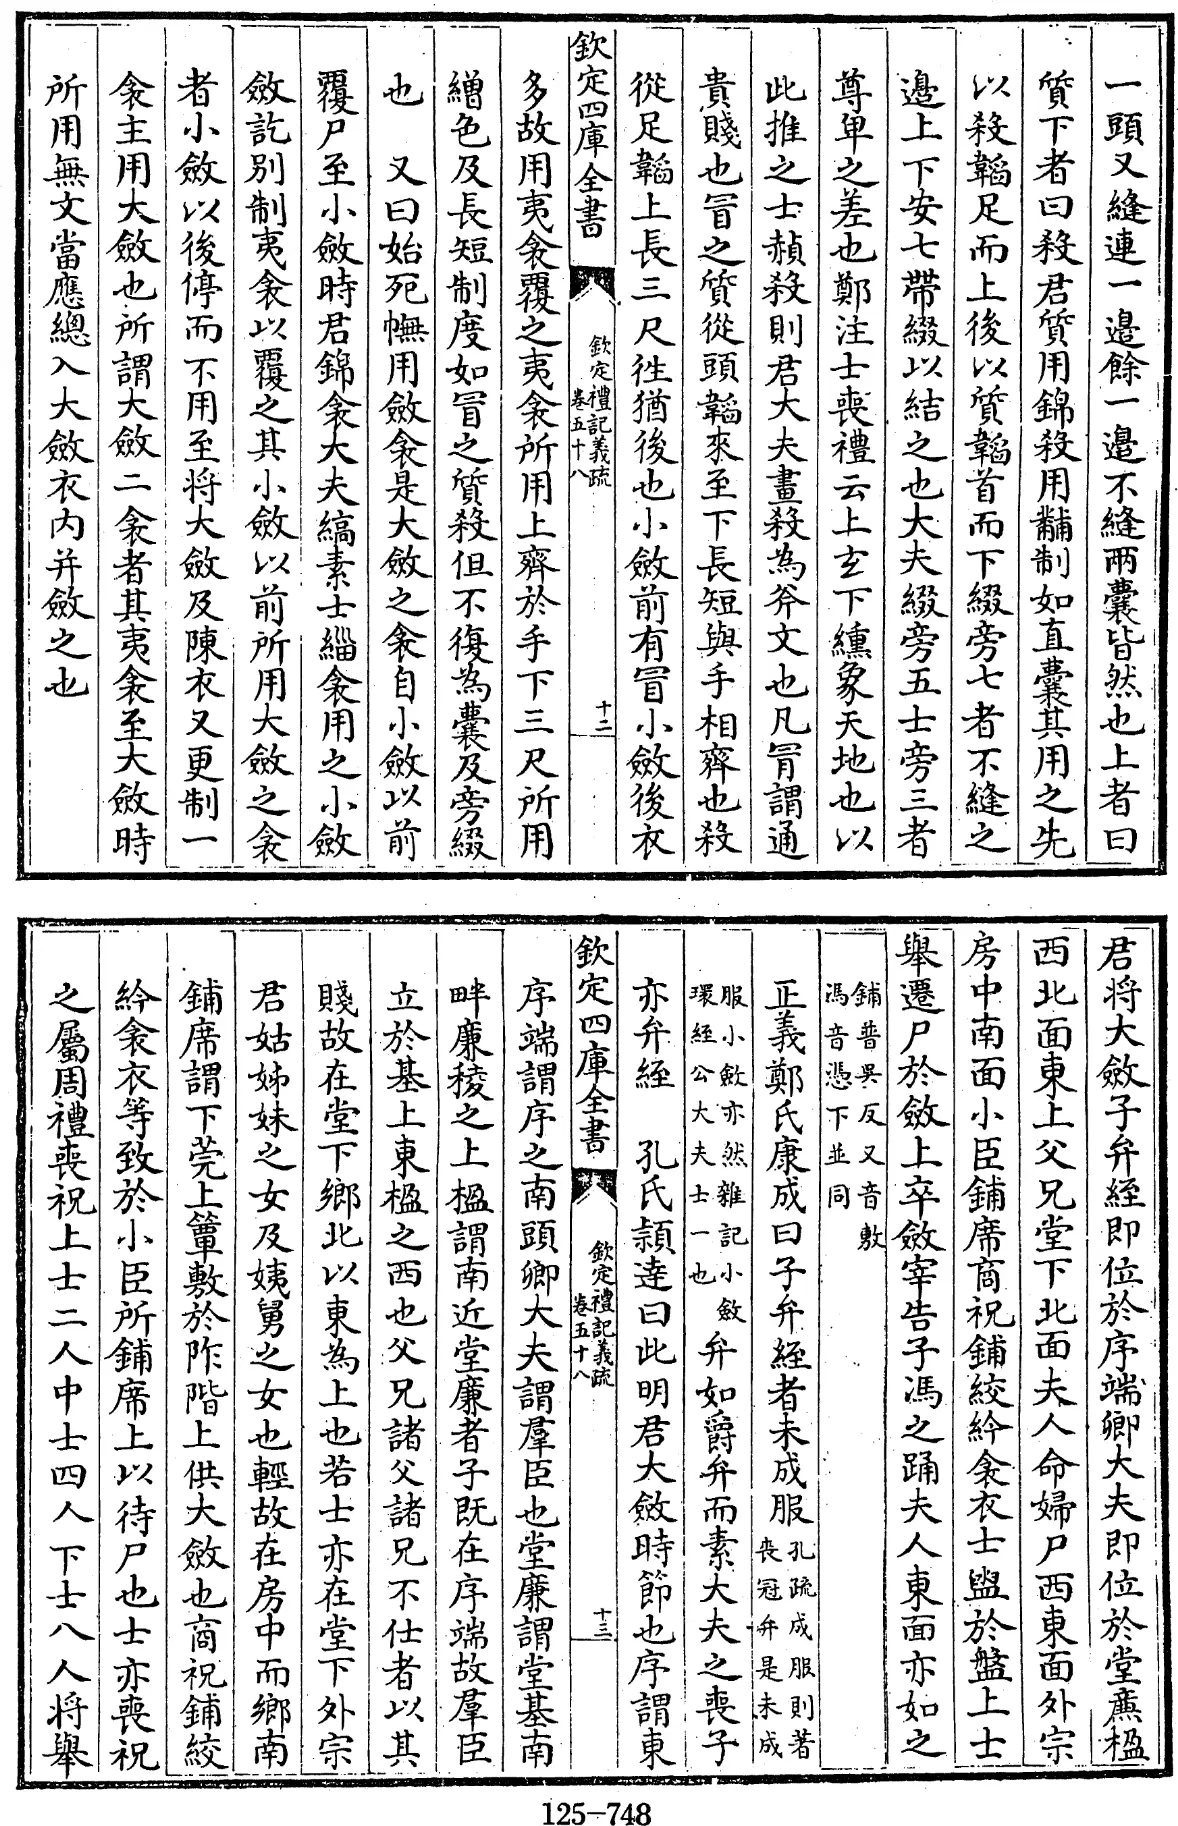 一頭又縫連一邉餘一邉不縫兩囊皆然也上者曰
質下者曰殺君質用錦殺用黼制如直囊其用之先
以殺韜足而上後以質韜首而下綴旁七者不縫之
邉上下安七帶綴以結之也大夫綴旁五士旁三者
尊卑之差也鄭注士喪禮云上玄下纁象天地也以
此推之士赬殺則君大夫畫殺為斧文也凡冐謂通
貴賤也冐之質從頭韜來至下長短與手相齊也殺
從足韜上長三尺徃猶後也小斂前有冐小斂後衣
欽定四庫全書
欽定禮記義疏
卷五十八
十二
多故用夷衾覆之夷衾所用上齊於手下三尺所用
繒色及長短制度如冐之質殺但不復為囊及旁綴
也　又曰始死幠用斂衾是大斂之衾自小斂以前
覆尸至小斂時君錦衾大夫縞素士緇衾用之小斂
斂訖別制夷衾以覆之其小斂以前所用大斂之衾
者小斂以後停而不用至将大斂及陳衣又更制一
衾主用大斂也所謂大斂二衾者其夷衾至大斂時
所用無文當應總入大斂衣内并斂之也
君将大斂子弁絰即位於序端卿大夫即位於堂廉楹
西北面東上父兄堂下北面夫人命婦尸西東面外宗
房中南面小臣鋪席商祝鋪絞紟衾衣士盥於盤上士
舉遷尸於斂上卒斂宰告子馮之踊夫人東面亦如之
鋪普吳反又音敷
馮音憑下並同
正義鄭氏康成曰子弁絰者未成服
孔疏成服則著
喪冠弁是未成
服小斂亦然雜記小斂
環絰公大夫士一也
弁如爵弁而素大夫之喪子
亦弁絰　孔氏頴逹曰此明君大斂時節也序謂東
欽定四庫全書
欽定禮記義疏
卷五十八
十三
序端謂序之南頭卿大夫謂羣臣也堂廉謂堂基南
畔廉稜之上楹謂南近堂廉者子既在序端故羣臣
立於基上東楹之西也父兄諸父諸兄不仕者以其
賤故在堂下鄉北以東為上也若士亦在堂下外宗
君姑姊妹之女及姨舅之女也輕故在房中而鄉南
鋪席謂下莞上簟敷於阼階上供大斂也商祝鋪絞
紟衾衣等致於小臣所鋪席上以待尸也士亦喪祝
之屬周禮喪祝上士二人中士四人下士八人将舉
125-748